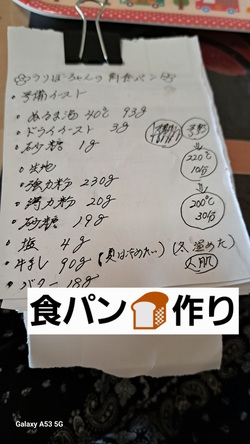 ・予備イースト
ぬるま湯 40℃ 93g
・ドライイースト 3g
・砂糖 1g
・生地
・強力粉 230g
・薄力粉 20g
・砂糖 19g
・塩 4g
・牛乳 90g (夏は冷めたい) (冬 温めた)
人肌
・バター 18g
予熱
↓
220℃
10分
↓
200℃
30分
食パン🍞作り
Galaxy A53 5G